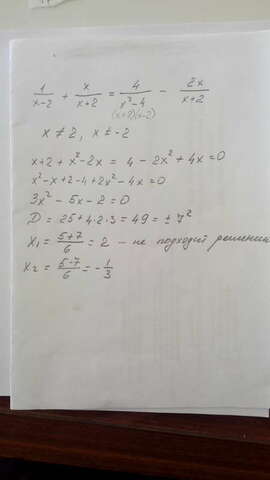 1/(x-2) + x/(x+2) = 4/(x²-4) - 2x/(x+2)
(x+2)(x-2)
x ≠ 2, x ≠ -2
x+2 + x²-2x = 4 - 2x² + 4x = 0
x² - x + 2 - 4 + 2x² - 4x = 0
3x² - 5x - 2 = 0
D = 25 + 4·2·3 = 49 = ± 7²
x₁ = (5+7)/6 = 2 — не подходит решению
x₂ = (5-7)/6 = -1/3